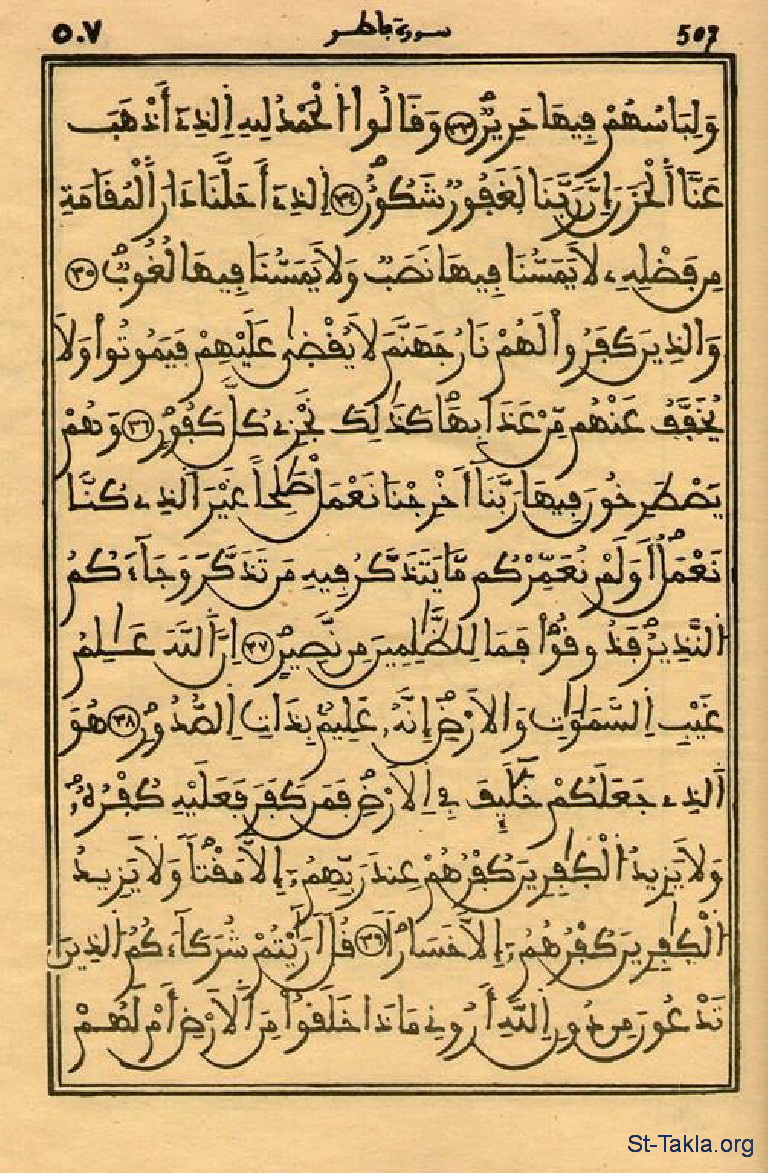 ٥٠٧ سورة فاطر 507
وَلِبَاسُهُمْ فِيهَا حَرِيرٌ ٣٣ وَقَالُوا الْحَمْدُ لِلهِ الذِے أَذْهَبَ
عَنَّا الْحَزَنَ إِنَّ رَبَّنَا لَغَفُورٌ شَكُورٌ ٣٤ الذِے أَحَلَّنَا دَارَ الْمُقَامَةِ
مِن فَضْلِهِ لاَ يَمَسُّنَا فِيهَا نَصَبٌ وَلاَ يَمَسُّنَا فِيهَا لُغُوبٌ ٣٥
وَالذِينَ كَفَرُوا لَهُمْ نَارُ جَهَنَّمَ لاَ يُقْضَىٰ عَلَيْهِمْ فَيَمُوتُوا وَلاَ
يُخَفَّفُ عَنْهُم مِّنْ عَذَابِهَا كَذَٰلِكَ نَجْزِے كُلَّ كَفُورٍ ٣٦ وَهُمْ
يَصْطَرِخُونَ فِيهَا رَبَّنَا أَخْرِجْنَا نَعْمَلْ صَٰلِحاً غَيْرَ الذِے كُنَّا
نَعْمَلُ أَوَلَمْ نُعَمِّرْكُم مَّا يَتَذَكَّرُ فِيهِ مَن تَذَكَّرَ وَجَآءَكُمُ
النَّذِيرُ فَذُوقُوا فَمَا لِلظَّٰلِمِينَ مِن نَّصِيرٍ ٣٧ إِنَّ اللَّهَ عَٰلِمُ
غَيْبِ السَّمَٰوَٰتِ وَالاَرْضِ إِنَّهُ عَلِيمٌ بِذَاتِ الصُّدُورِ ٣٨ هُوَ
الذِے جَعَلَكُمْ خَلَٰٓئِفَ فِے الاَرْضِ فَمَن كَفَرَ فَعَلَيْهِ كُفْرُهُ
وَلاَ يَزِيدُ الْكَٰفِرِينَ كُفْرُهُمْ عِندَ رَبِّهِمُ إِلاَّ مَقْتاً وَلاَ يَزِيدُ
الْكَٰفِرِينَ كُفْرُهُمُ إِلاَّ خَسَاراً ٣٩ قُلْ أَرَٰيْتُمْ شُرَكَآءَكُمُ الذِينَ
تَدْعُونَ مِن دُونِ اللَّهِ أَرُونِے مَاذَا خَلَقُوا مِنَ الاَرْضِ أَمْ لَهُمْ
St-Takla.org